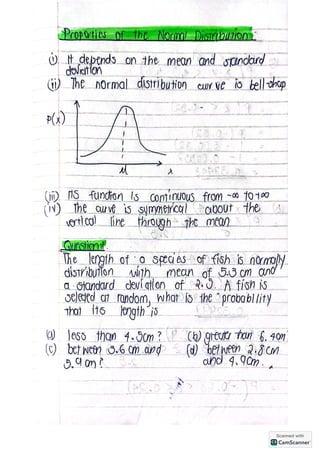 Properties of the Normal Distribution:
(i) It depends on the mean and standard
deviation
(ii) The normal distribution curve is bell-shap
P(x)
μ x
(iii) Its function is continuous from -∞ to +∞
(iv) The curve is symmetrical about the
vertical line through the mean
Question:
The length of a species of fish is normally
distribution with mean of cm and
a standard deviation of A fish is
selected at random, what is the probability
that its length is
(a) less than 4.5cm? (b) greater than 6.4cm
(c) between 3.6cm and (d) between 2.8cm
5.9cm? and 4.9cm.
Scanned with
CamScanner